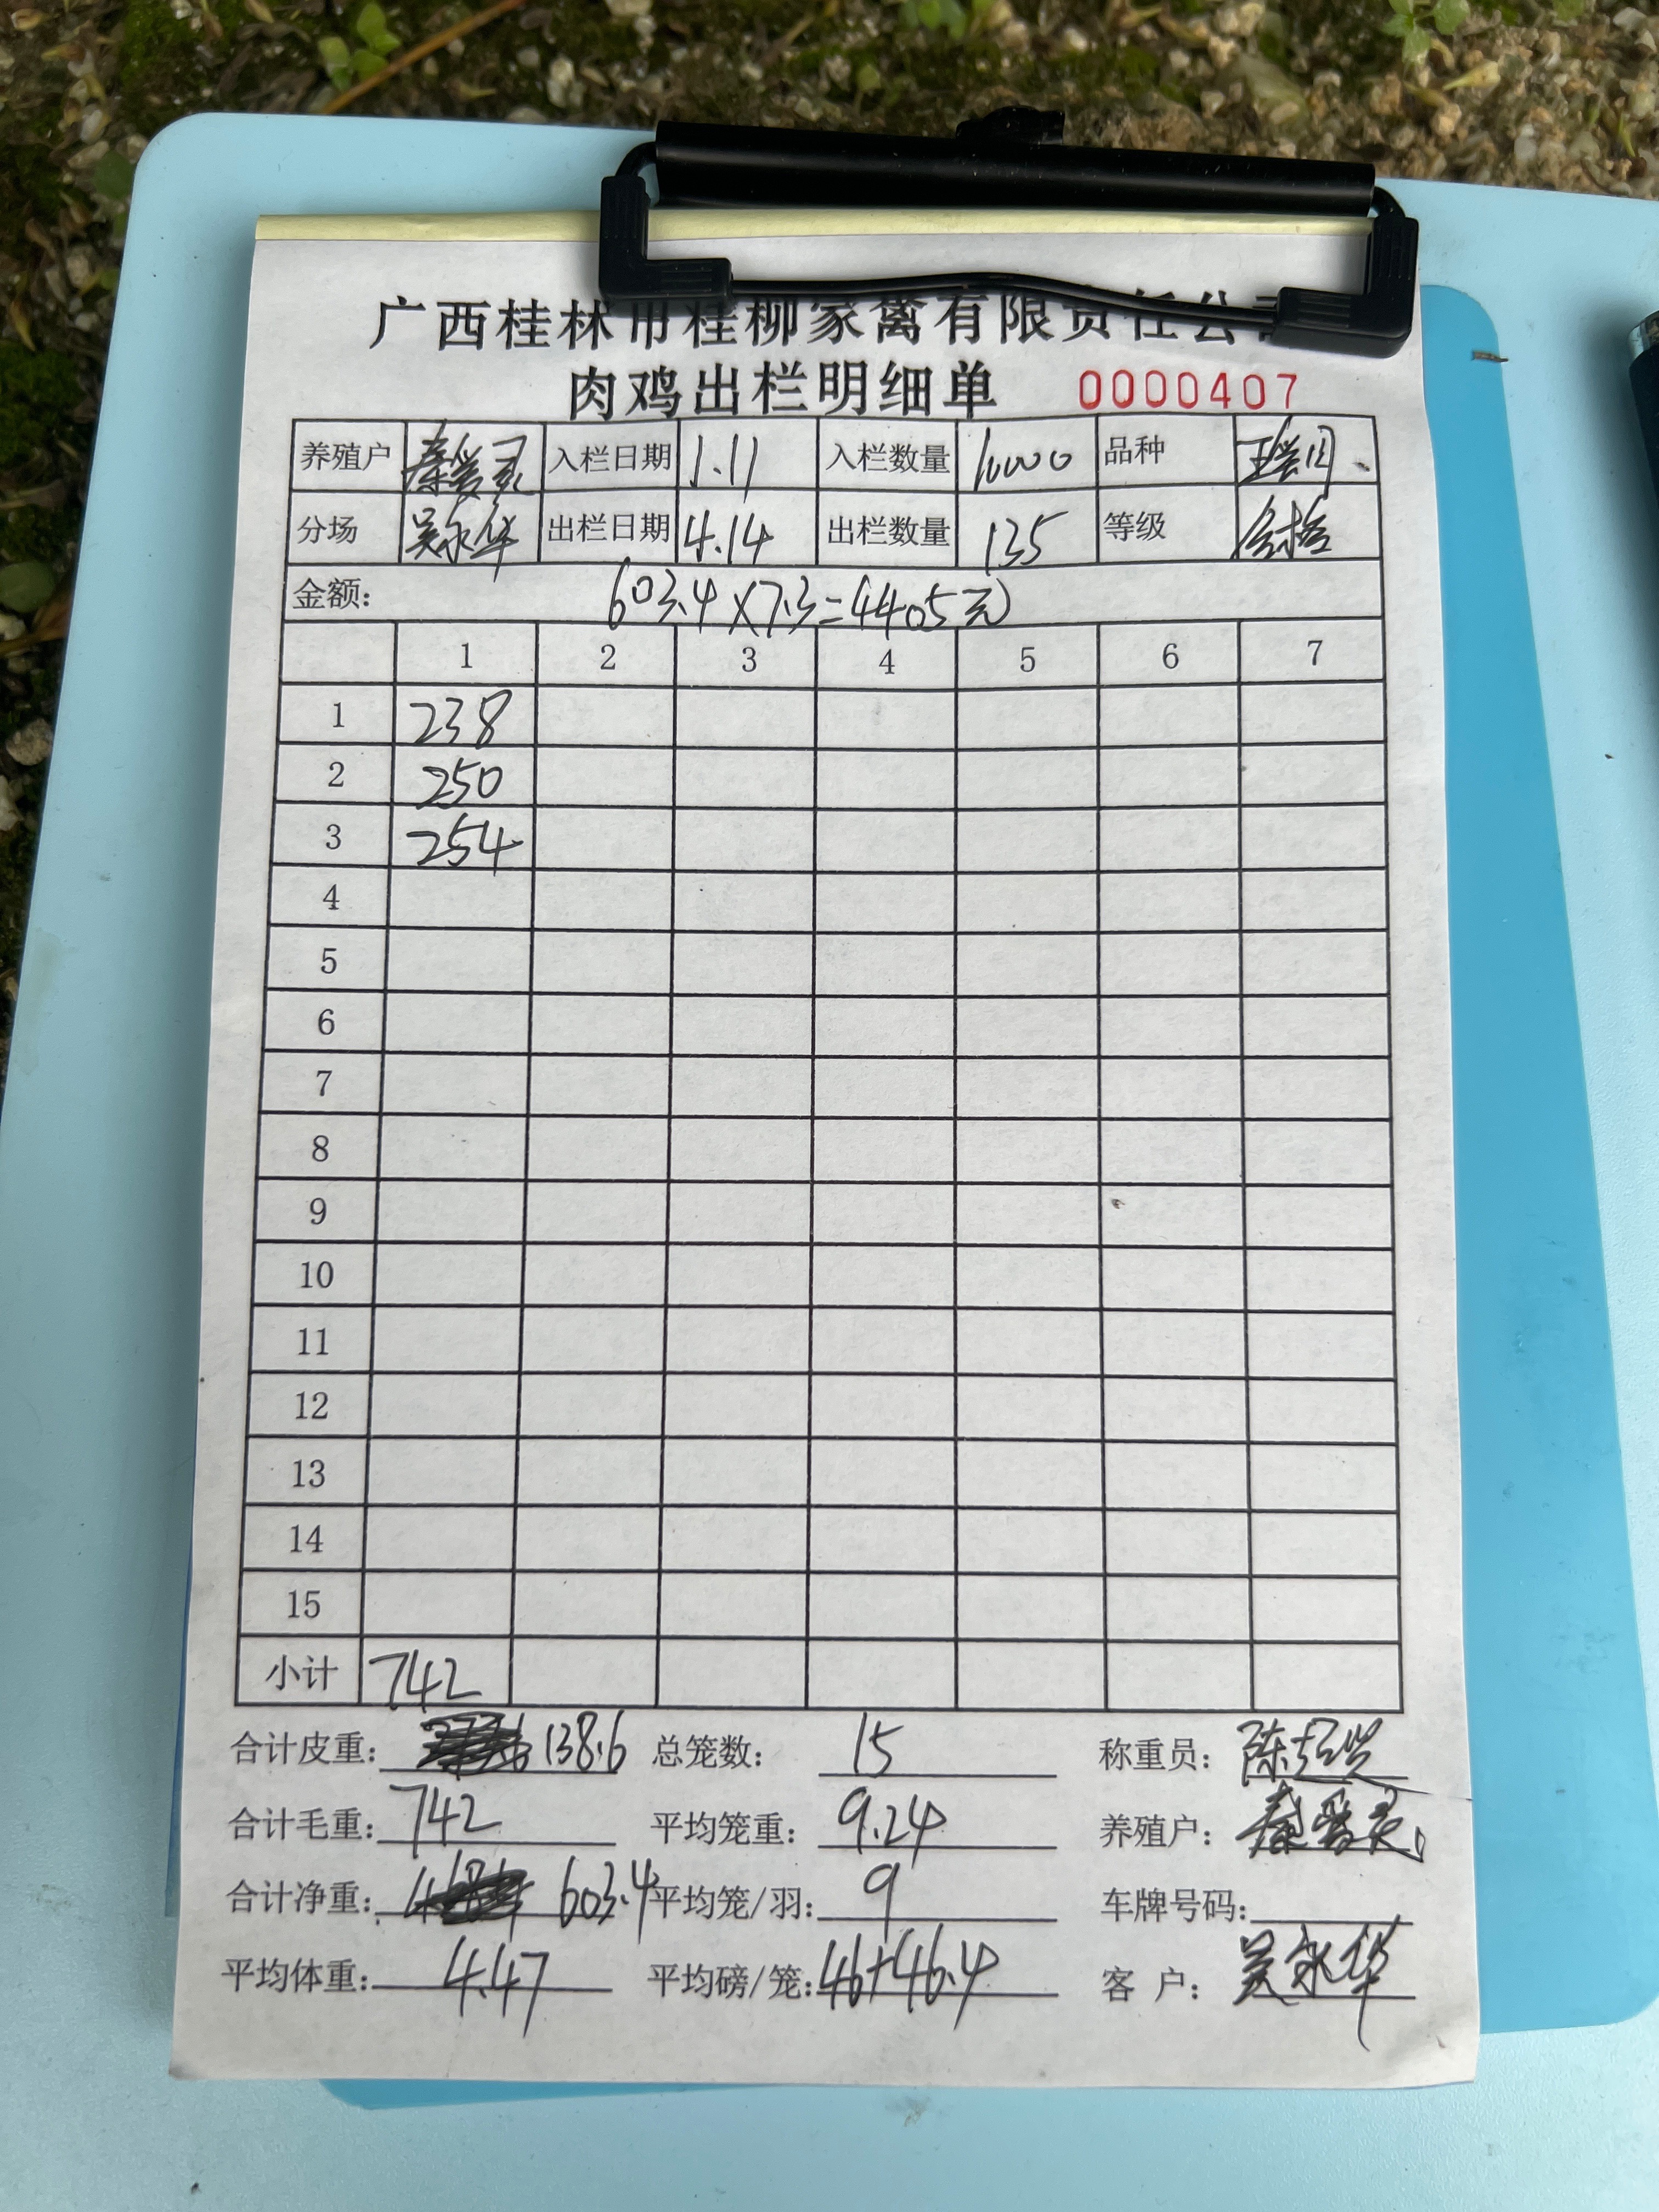 广西桂林市桂柳家禽有限责任公
肉鸡出栏明细单 0000407
养殖户 秦爱灵 入栏日期 1.11 入栏数量 10000 品种
分场 吴永华 出栏日期 4.14 出栏数量 135 等级 合格
金额: 603.4×7.3=4405元
1 2 3 4 5 6 7
1 238
2 250
3 254
4
5
6
7
8
9
10
11
12
13
14
15
小计 742
合计皮重: 138.6 总笼数: 15 称重员:
合计毛重: 742 平均笼重: 9.24 养殖户: 秦爱灵
合计净重: 603.4 平均笼/羽: 9 车牌号码:
平均体重: 4.47 平均磅/笼: 46+46.4 客 户: 吴永华